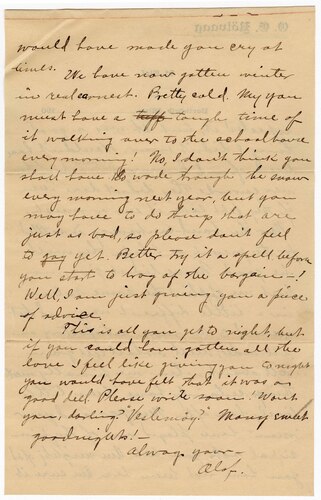 would have made you cry at
times.
We have now gotten winter
in real earnest. Pretty cold. My you
must have a tuff tough time of
it walking over to the schoolhouse
every morning! No, I don't think you
shall have to wade trough the snow
every morning next year, but you
may have to do things that are
just as bad, so please don't feel
to gay yet. Better try it a spell before
you start to brag of the bargain —!
Well, I am just giving you a piece
of advice.
This is all you get to night, but
if you could have gotten all the
love I feel like giving you to night
you would have felt that it was a
good deel. Please write soon! Wont
you, darling? Many sweet
goodnights! —
Always your —
Olaf.